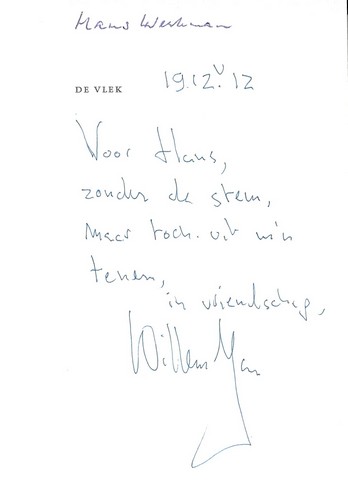 Hans Werkman
DE VLEK
19.12.12
v
Voor Hans,
zonder de stem,
maar toch uit m'n
tenen,
in vriendschap,
Willem Jan